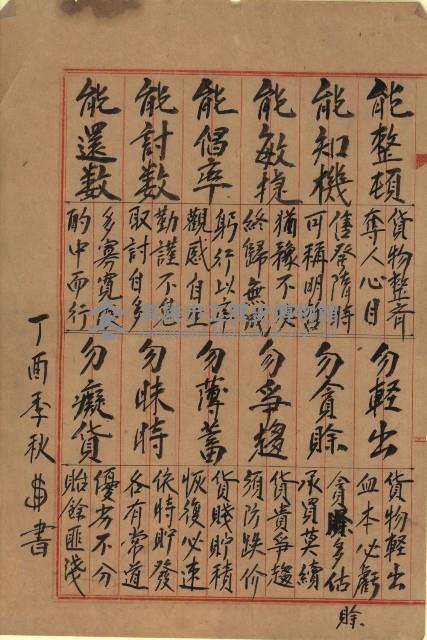 能整頓
貨物整齊
奪人心目
能知機
售發隨時
可稱明哲
能敏捷
猶豫不決
終歸無成
能倡率
躬行以率
觀感自生
能討數
勤謹不怠
取討自多
能還數
多寡寬
酌中而行
勿輕出
貨物輕出
血本必虧
勿貪賒
貪賒多估
承買莫續
勿爭趨
貨貴爭趨
須防跌价
勿薄蓄
貨賤貯積
恢復必速
勿昧時
依時貯發
各有常道
勿癡貨
優劣不分
貽餘匪淺
賒
丁酉季秋書
高雄市立歷史博物館